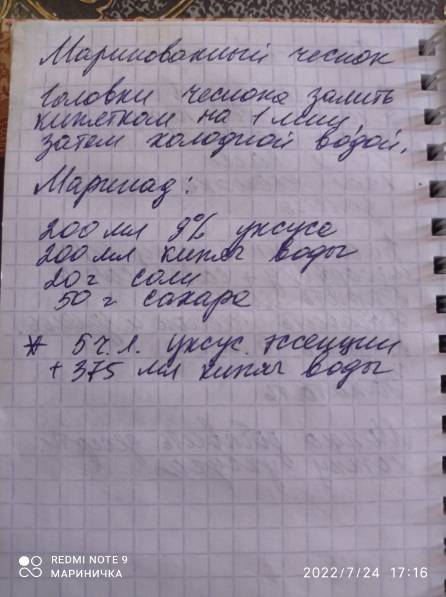 Маринованный чеснок
Головки чеснока залить
кипятком на 1 мин,
затем холодной водой.
Маринад:
200 мл 9% уксуса
200 мл кипяч воды
20 г соли
50 г сахара
* 5 ч. л. уксус. эссенции
+ 375 мл кипяч воды
REDMI NOTE 9
МАРИНИЧКА
2022/7/24 17:16